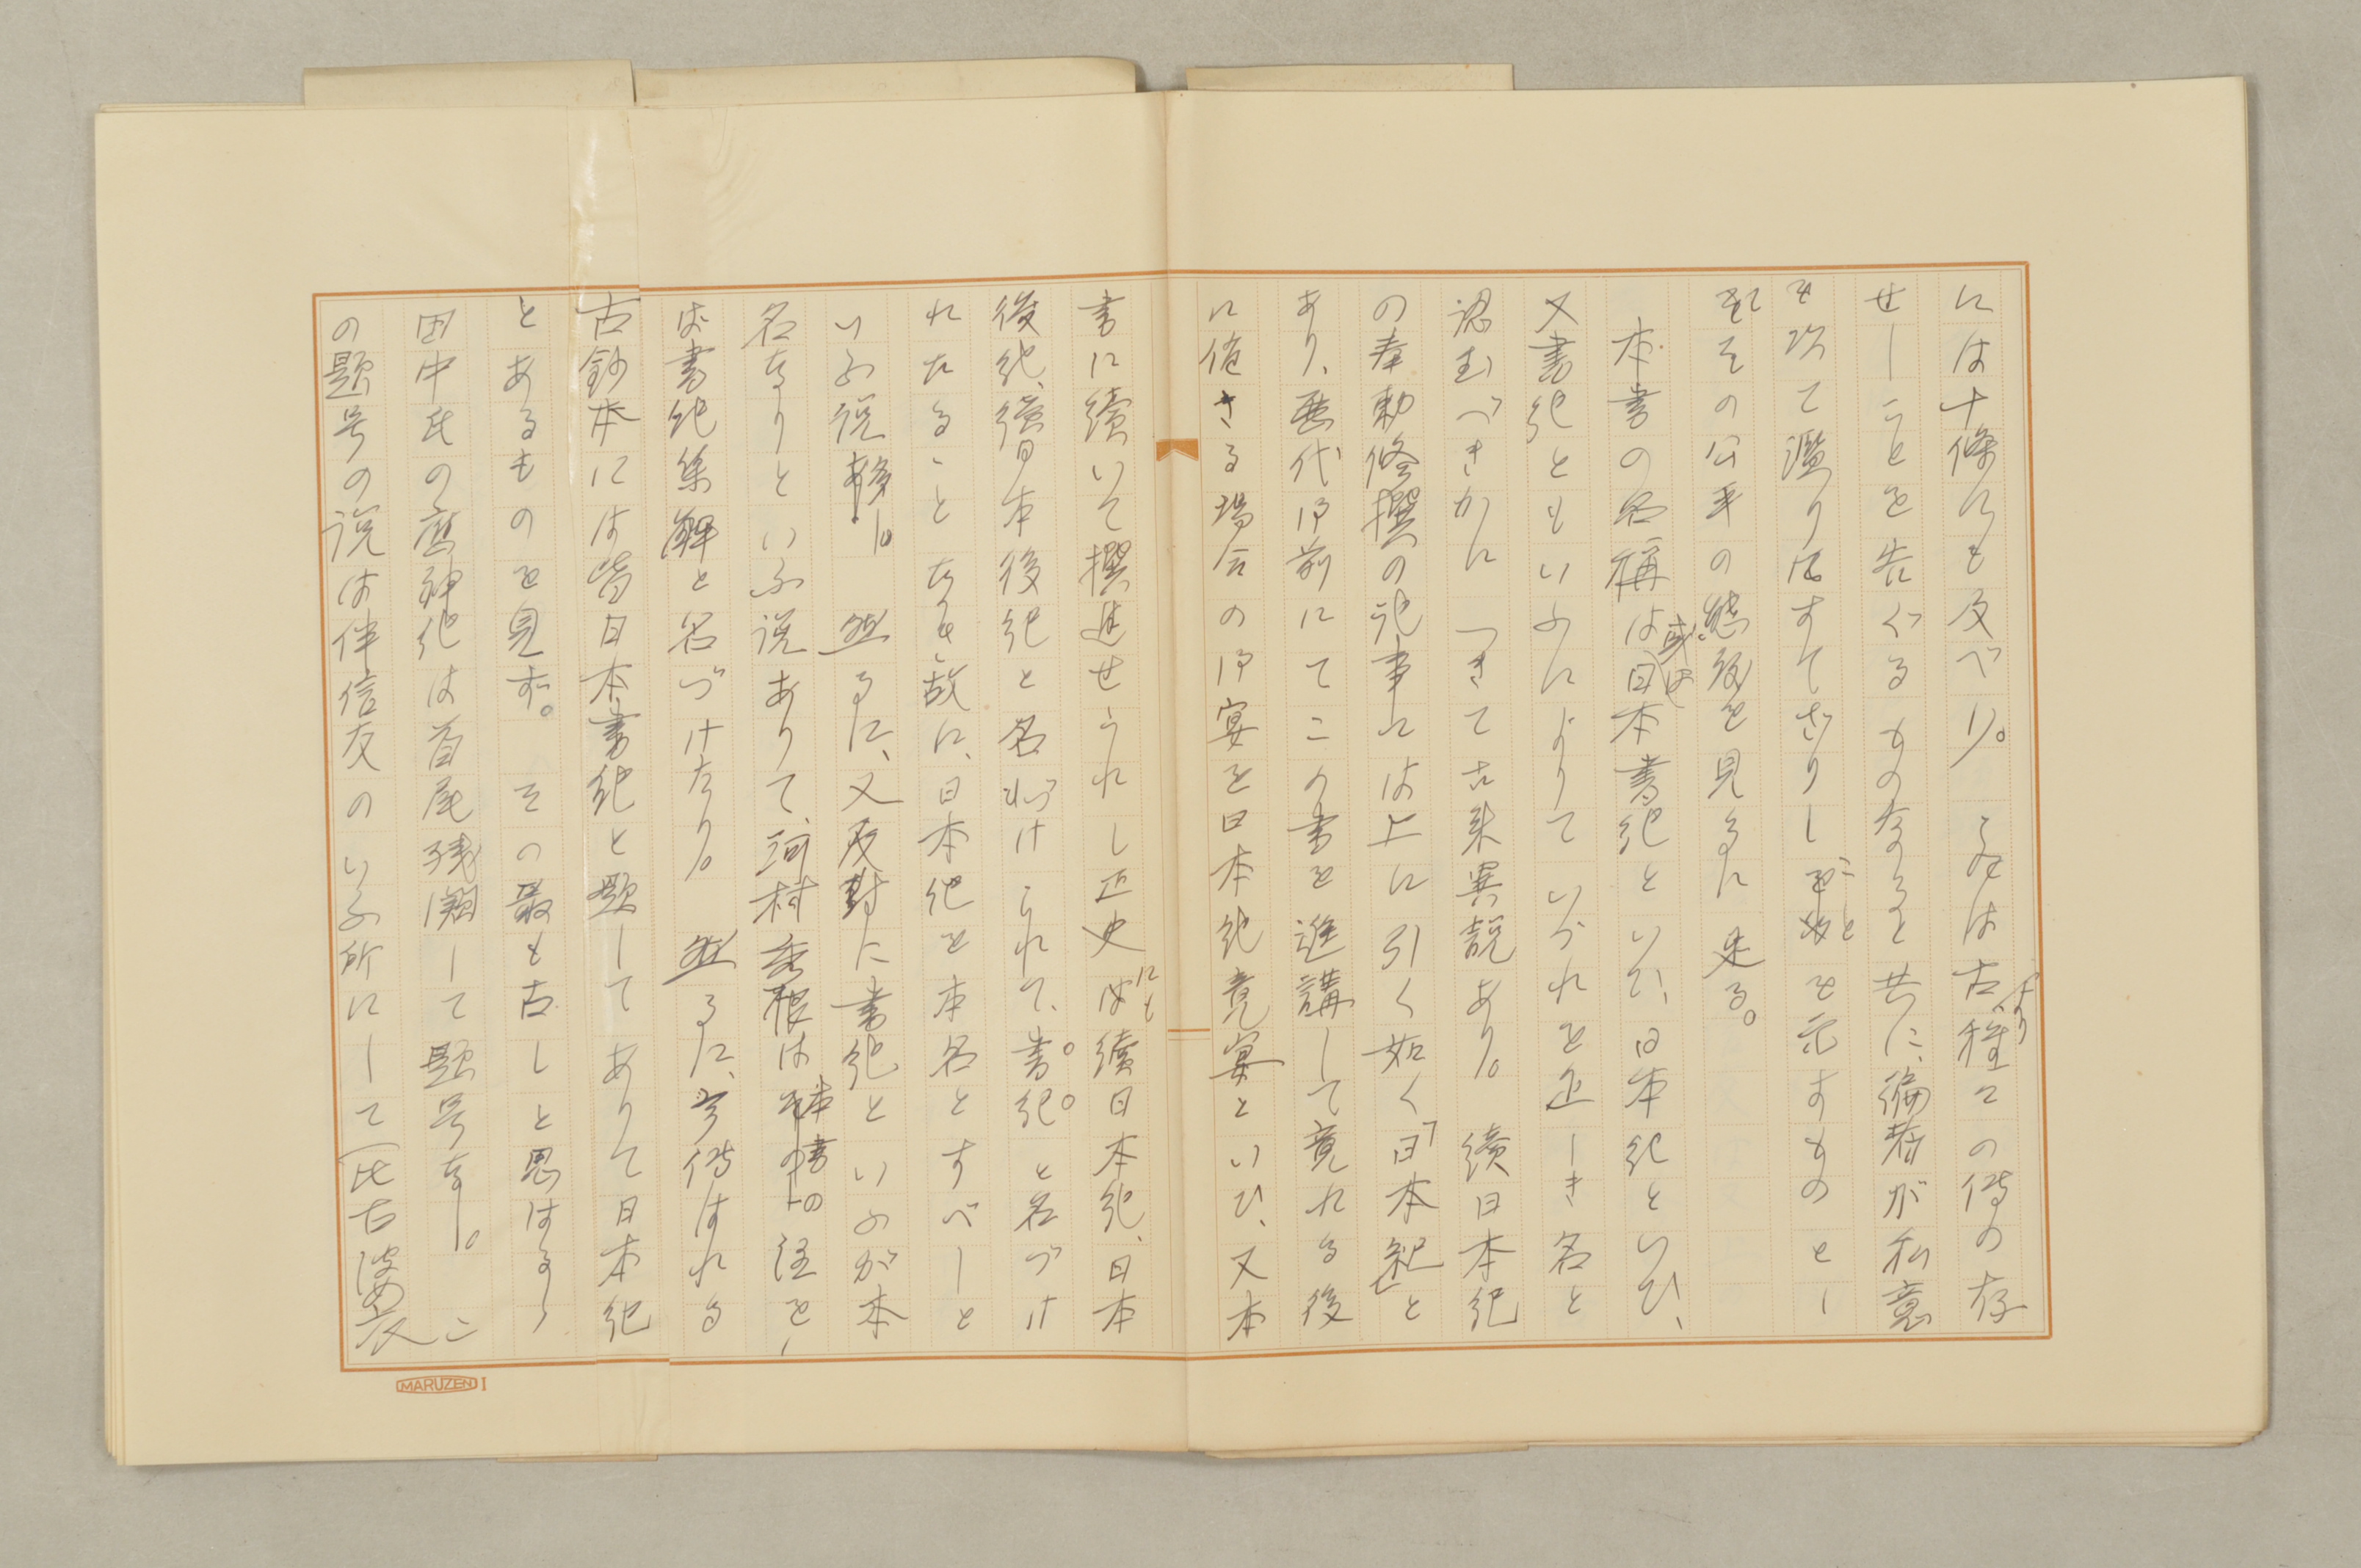 には十條にも及べり。これは古より種々の傳の存
せしことを告ぐるものなると共に、編者が私意
を以て濫りに
その公平の態度を見るに足る。
本書の名稱は或は日本書紀といひ、日本紀といひ、
又書紀ともいふによりていづれを正しき名と
認むべきかにつきて古来異説あり。續日本紀
の奉勅修撰の記事には上に引く如く「日本紀と
あり、歴代御前にてこの書を進講して竟れる後
に催さる場合の御宴を日本紀竟宴といひ、又本
書に續いて撰進せられし正史にも續日本紀、日本
後紀、續日本後紀と名づけられて、書紀と名づけ
れたることなき故に、日本紀を本名とすべしと
いふ説あり。然るに、又反對に書紀といふが本
名なりといふ説ありて、河村秀根は本書の註を
ば書紀集解と名づけたり。然るに、今傳はれる
古鈔本には皆日本書紀と題してありて日本紀
とあるものを見ず。その最も古しと思はるゝ
田中氏の應神紀は首尾残闕して題号なし。こ
の題号の説は伴信友のいふ所にして(比古婆衣
MARUZEN I